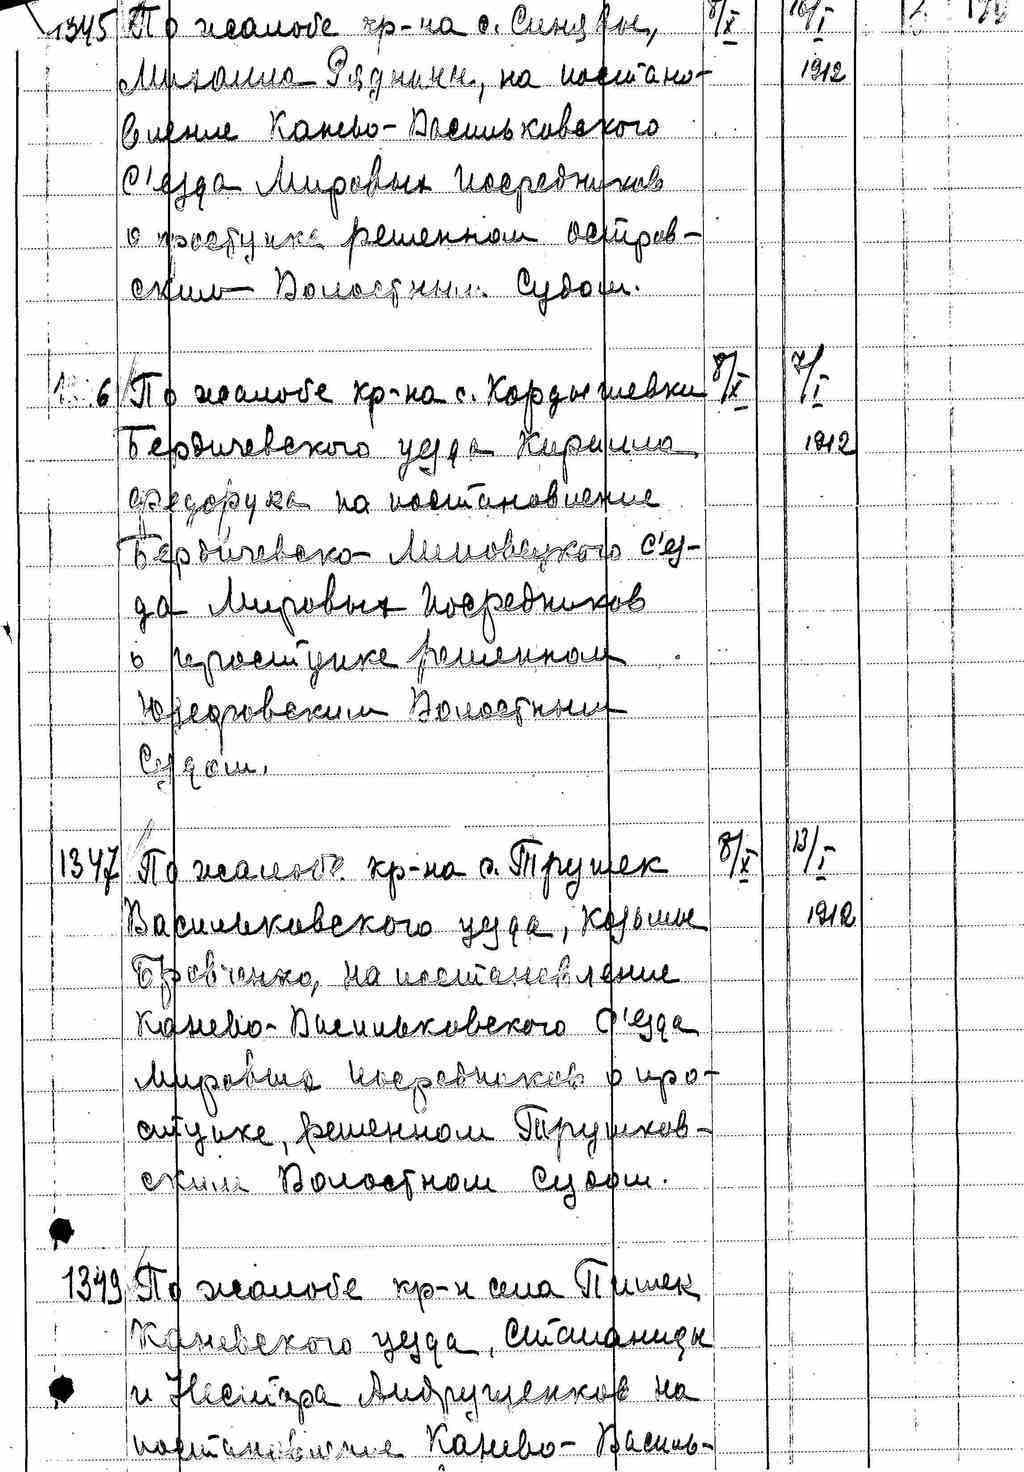 1345 По жалобе кр-на с. Синявы, 8/X 16/I
Михаила Ряднини, на постано- 1912
вление Канево-Васильковского
С'езда Мировых Посредников
о проступке решенном остров-
ским Волостным Судом.
6 По жалобе кр-на с. Кордышевки 8/X 7/I
Бердичевского уезда Кирилла 1912
Федорука на постановление
Бердичевско-Липовецкого С'ез-
да Мировых Посредников
о проступке решенном
Юзефовским Волостным
Судом.
1347 По жалобе кр-на с. Трушек 8/X 13/I
Васильковского уезда, Козьмы 1912
Бровченко, на постановление
Канево-Васильковского С'езда
Мировых Посредников о про-
ступке, решенном Трушков-
ским Волостном Судом.
1349 По жалобе кр-н села Пишек
Каневского уезда, Степаниды
и Нестера Андрущенков на
постановление Канево-Василь-